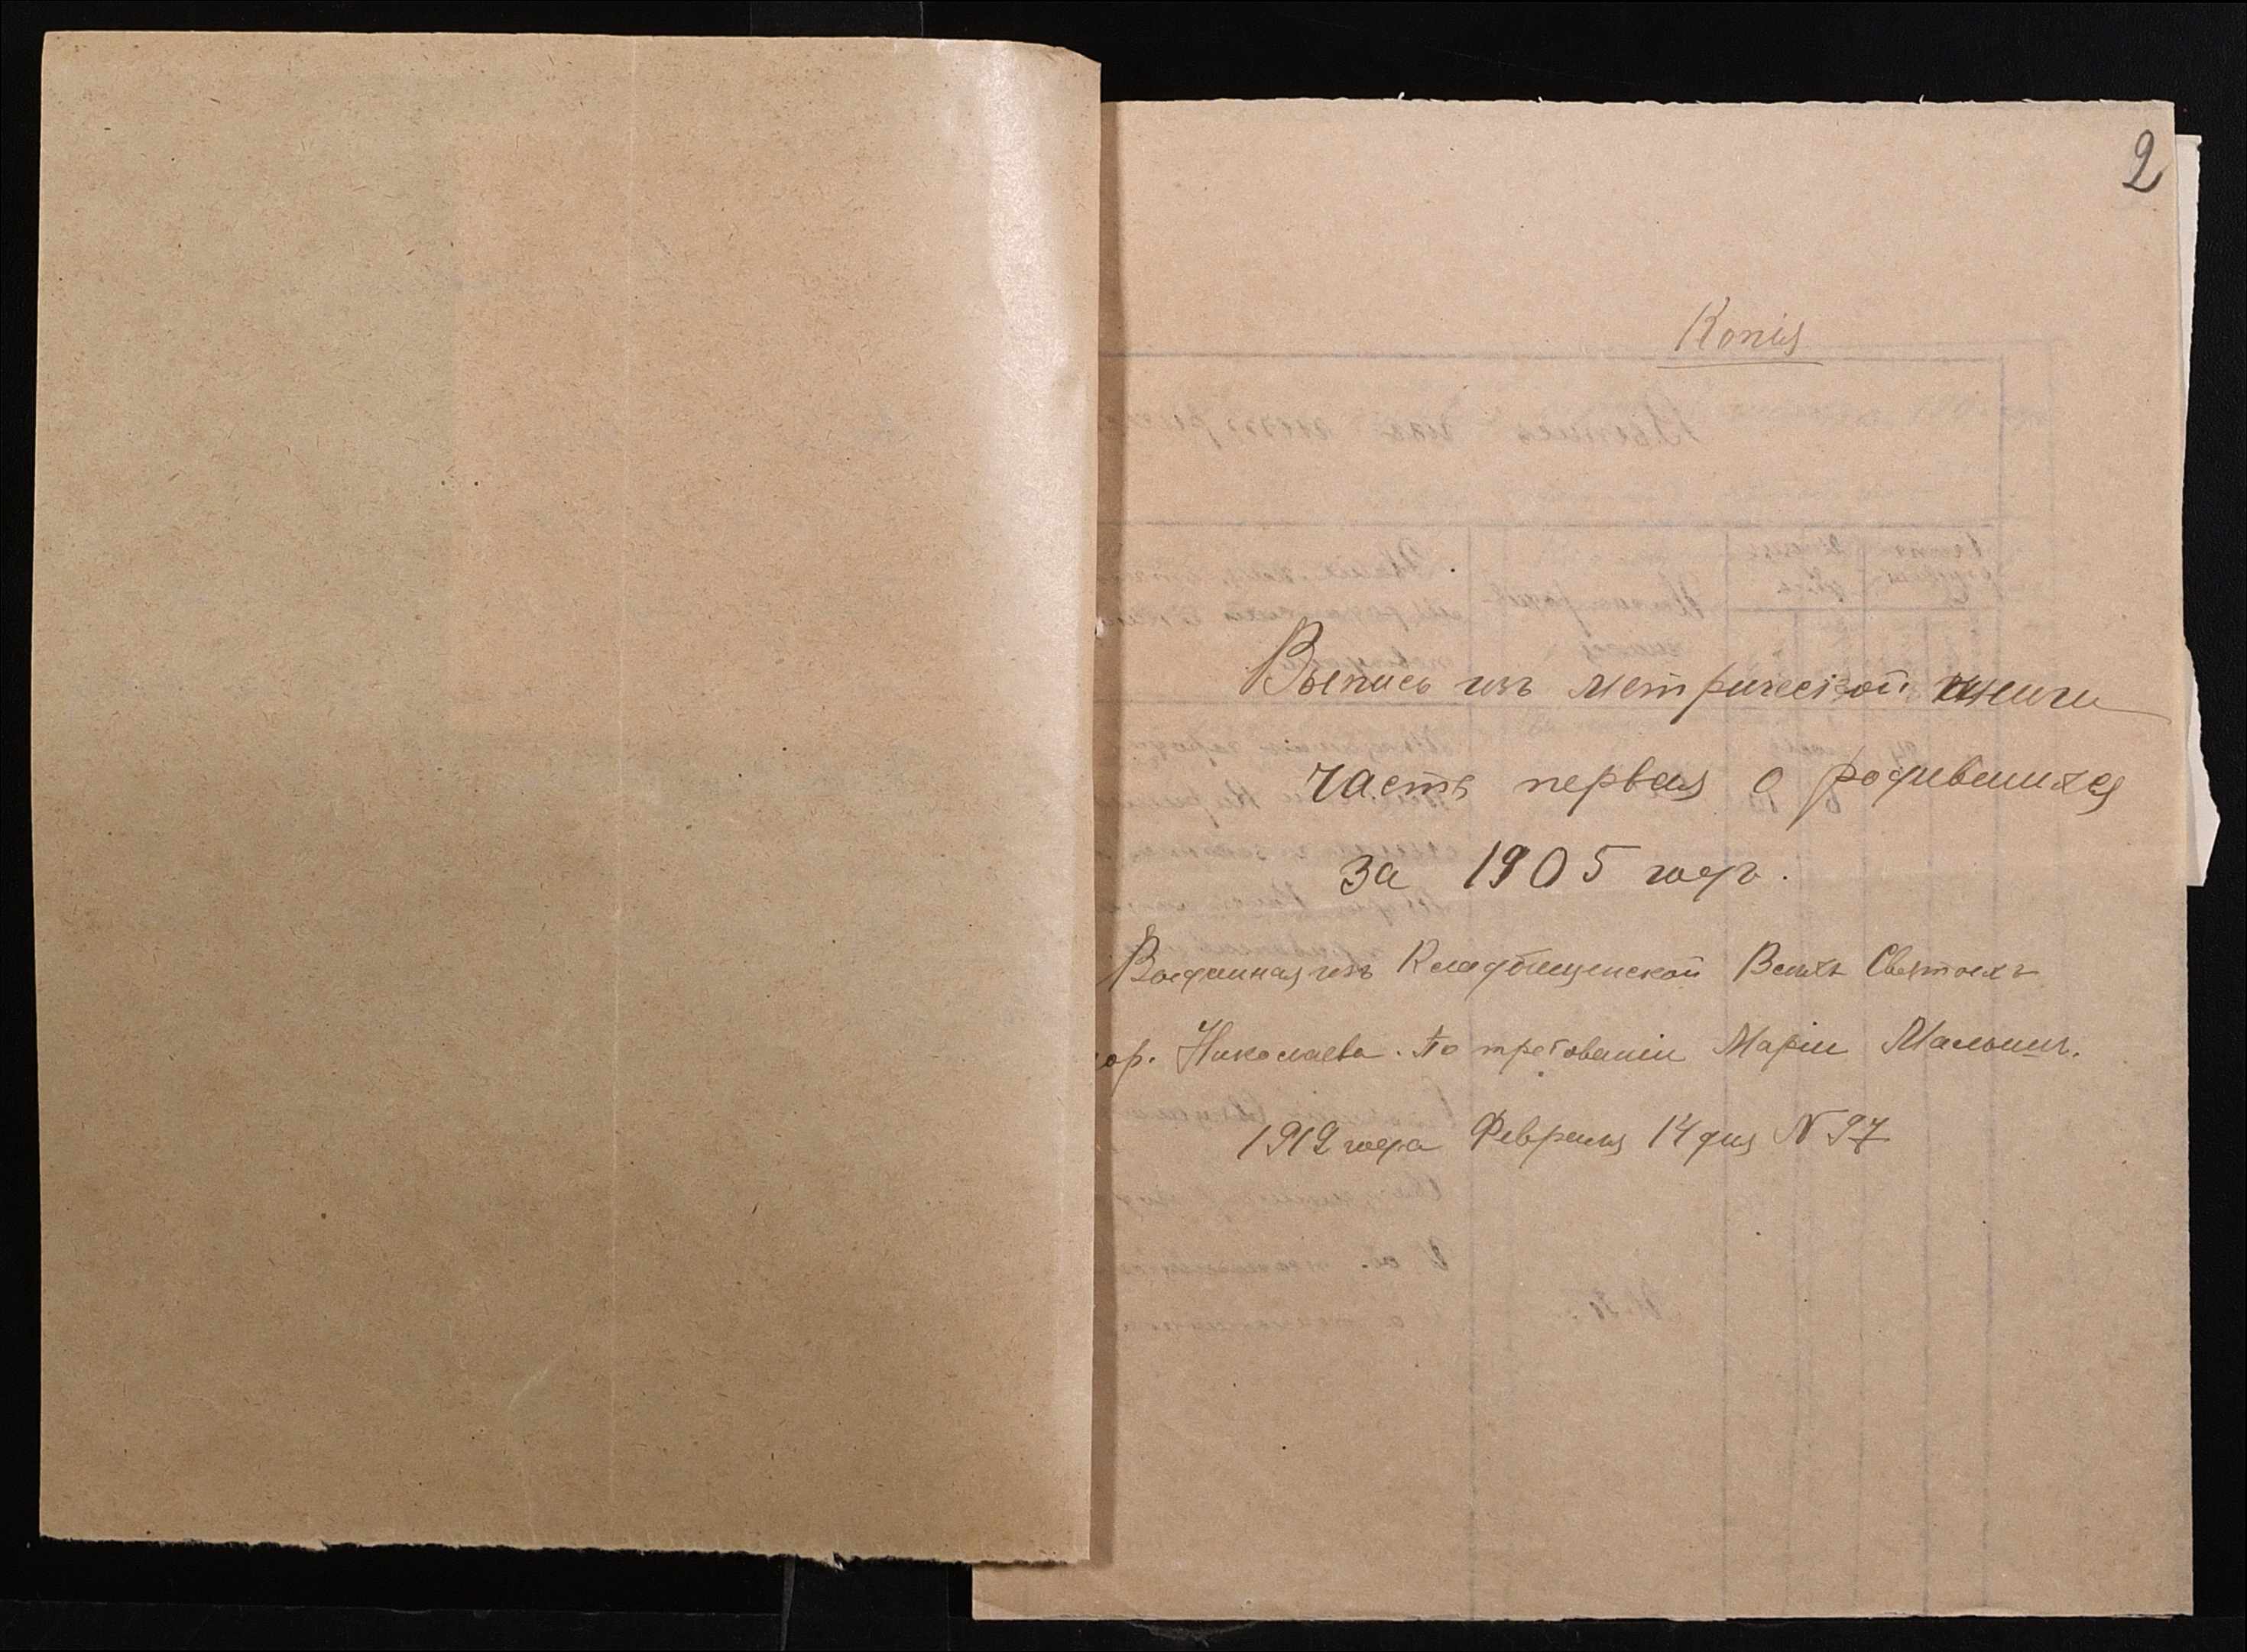 2
Копія
Выпись изъ метрической книги
часть первая о родившихся
за 1905 годъ.
Выданная изъ Кладбищенской Всѣхъ Святыхъ
гор. Николаева. По требованіи Маріи
1919 года Февраля 14 дня N 97